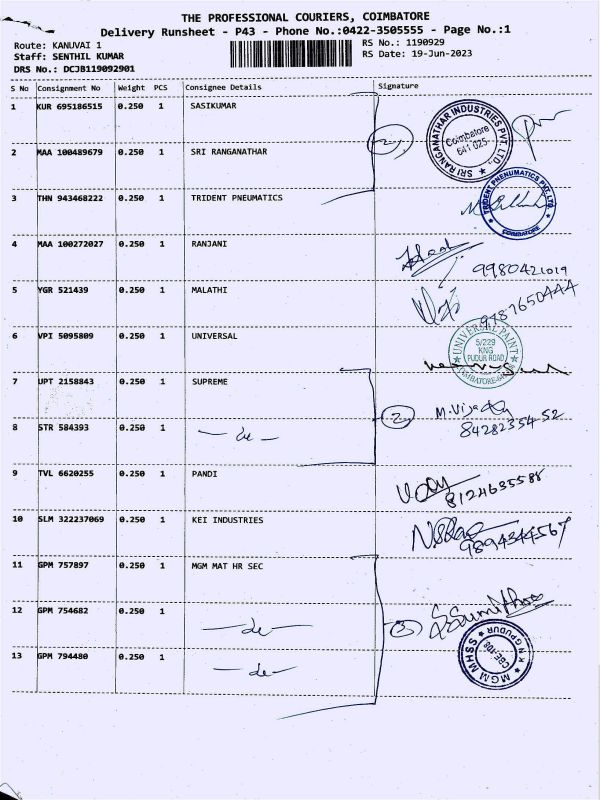 THE PROFESSIONAL COURIERS, COIMBATORE
Delivery Runsheet - P43 - Phone No.:0422-3505555 - Page No.:1
Route: KANUVAI 1 RS No.: 1190929
Staff: SENTHIL KUMAR RS Date: 19-Jun-2023
DRS No.: DCJB119092901
S No Consignment No Weight PCS Consignee Details Signature
1 KUR 695186515 0.250 1 SASIKUMAR
SRI RANGANATHAR INDUSTRIES PVT. LTD.
Coimbatore
641 025
2 MAA 100489679 0.250 1 SRI RANGANATHAR
3 THN 943468222 0.250 1 TRIDENT PNEUMATICS
TRIDENT PNEUMATICS PVT. LTD.
COIMBATORE
4 MAA 100272027 0.250 1 RANJANI
9980421019
5 YGR 521439 0.250 1 MALATHI
9787650444
6 VPI 5095809 0.250 1 UNIVERSAL
UNIVERSAL PAINT
5/229
KNG
PUDUR ROAD
7 UPT 2158843 0.250 1 SUPREME
2
M. Vijay
8428235452
8 STR 584393 0.250 1 - do -
9 TVL 6620255 0.250 1 PANDI
8124635588
10 SLM 322237069 0.250 1 KEI INDUSTRIES
9894344567
11 GPM 757897 0.250 1 MGM MAT HR SEC
12 GPM 754682 0.250 1 - do -
3
13 GPM 794480 0.250 1 - do -
MGM MHSS
CBE-108